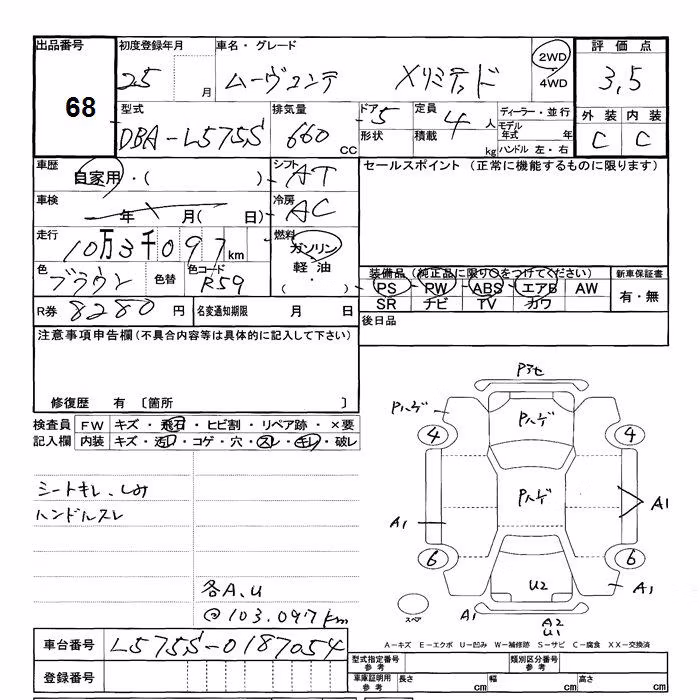 出品番号 初度登録年月 車名・グレード 評価点
68 25 月 ムーヴコンテ Xリミテッド 2WD 4WD 3,5
型式 排気量 ドア 5 定員 4 人 ディーラー・並行 外装 内装
DBA-L575S 660 CC 形状 積載 kg モデル年式 年 ハンドル 左・右 C C
車歴 自家用・( ) シフト AT セールスポイント (正常に機能するものに限ります)
車検 年 月( 日) 冷房 AC
走行 10万3千097km 燃料 ガソリン
色 ブラウン 色替 色コード R59 軽油 ( ・ ) 装備品 (純正品に限り○をつけてください) 新車保証書
PS PW ABS エアB AW 有・無
SR ナビ TV カワ
R券 8280 円 名変通知期限 月 日 後日品
注意事項申告欄(不具合内容等は具体的に記入して下さい)
修復歴 有 〔箇所 〕
検査員 FW キズ・飛石・ヒビ割・リペア跡・×要
記入欄 内装 キズ・汚れ・コゲ・穴・スレ・キレ・破レ
シートキレ、シミ
ハンドルスレ
各A、U
@103.097km
Pアセ
Pハゲ Pハゲ
4 4
Pハゲ
A1 A1
6 6
U2 A1
スペア A1 A2
U1
A-キズ E-エクボ U-凹み W-補修跡 S-サビ C-腐食 XX-交換済
車台番号 L575S-0187054
登録番号
型式指定番号 参考 類別区分番号 参考
車庫証明用 参考 長さ cm 幅 cm 高さ cm